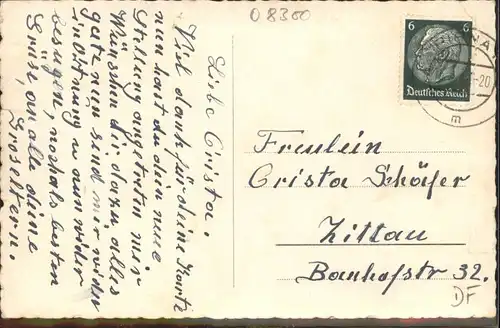 08300
Liebe Crista.
Viel dank für deine Karte
nun hast du dein neue
Stellung angetreten wir
Wünschen dir dazu alles
gute nun send mir wider
in Ottnung u nun wider
besügen, nochals besten
Grüse an alle deine
Groseltern.
6 6
Deutsches Reich
-20
m
Freulein
Crista Schäfer
Zittau
Banhofstr 32.
DF